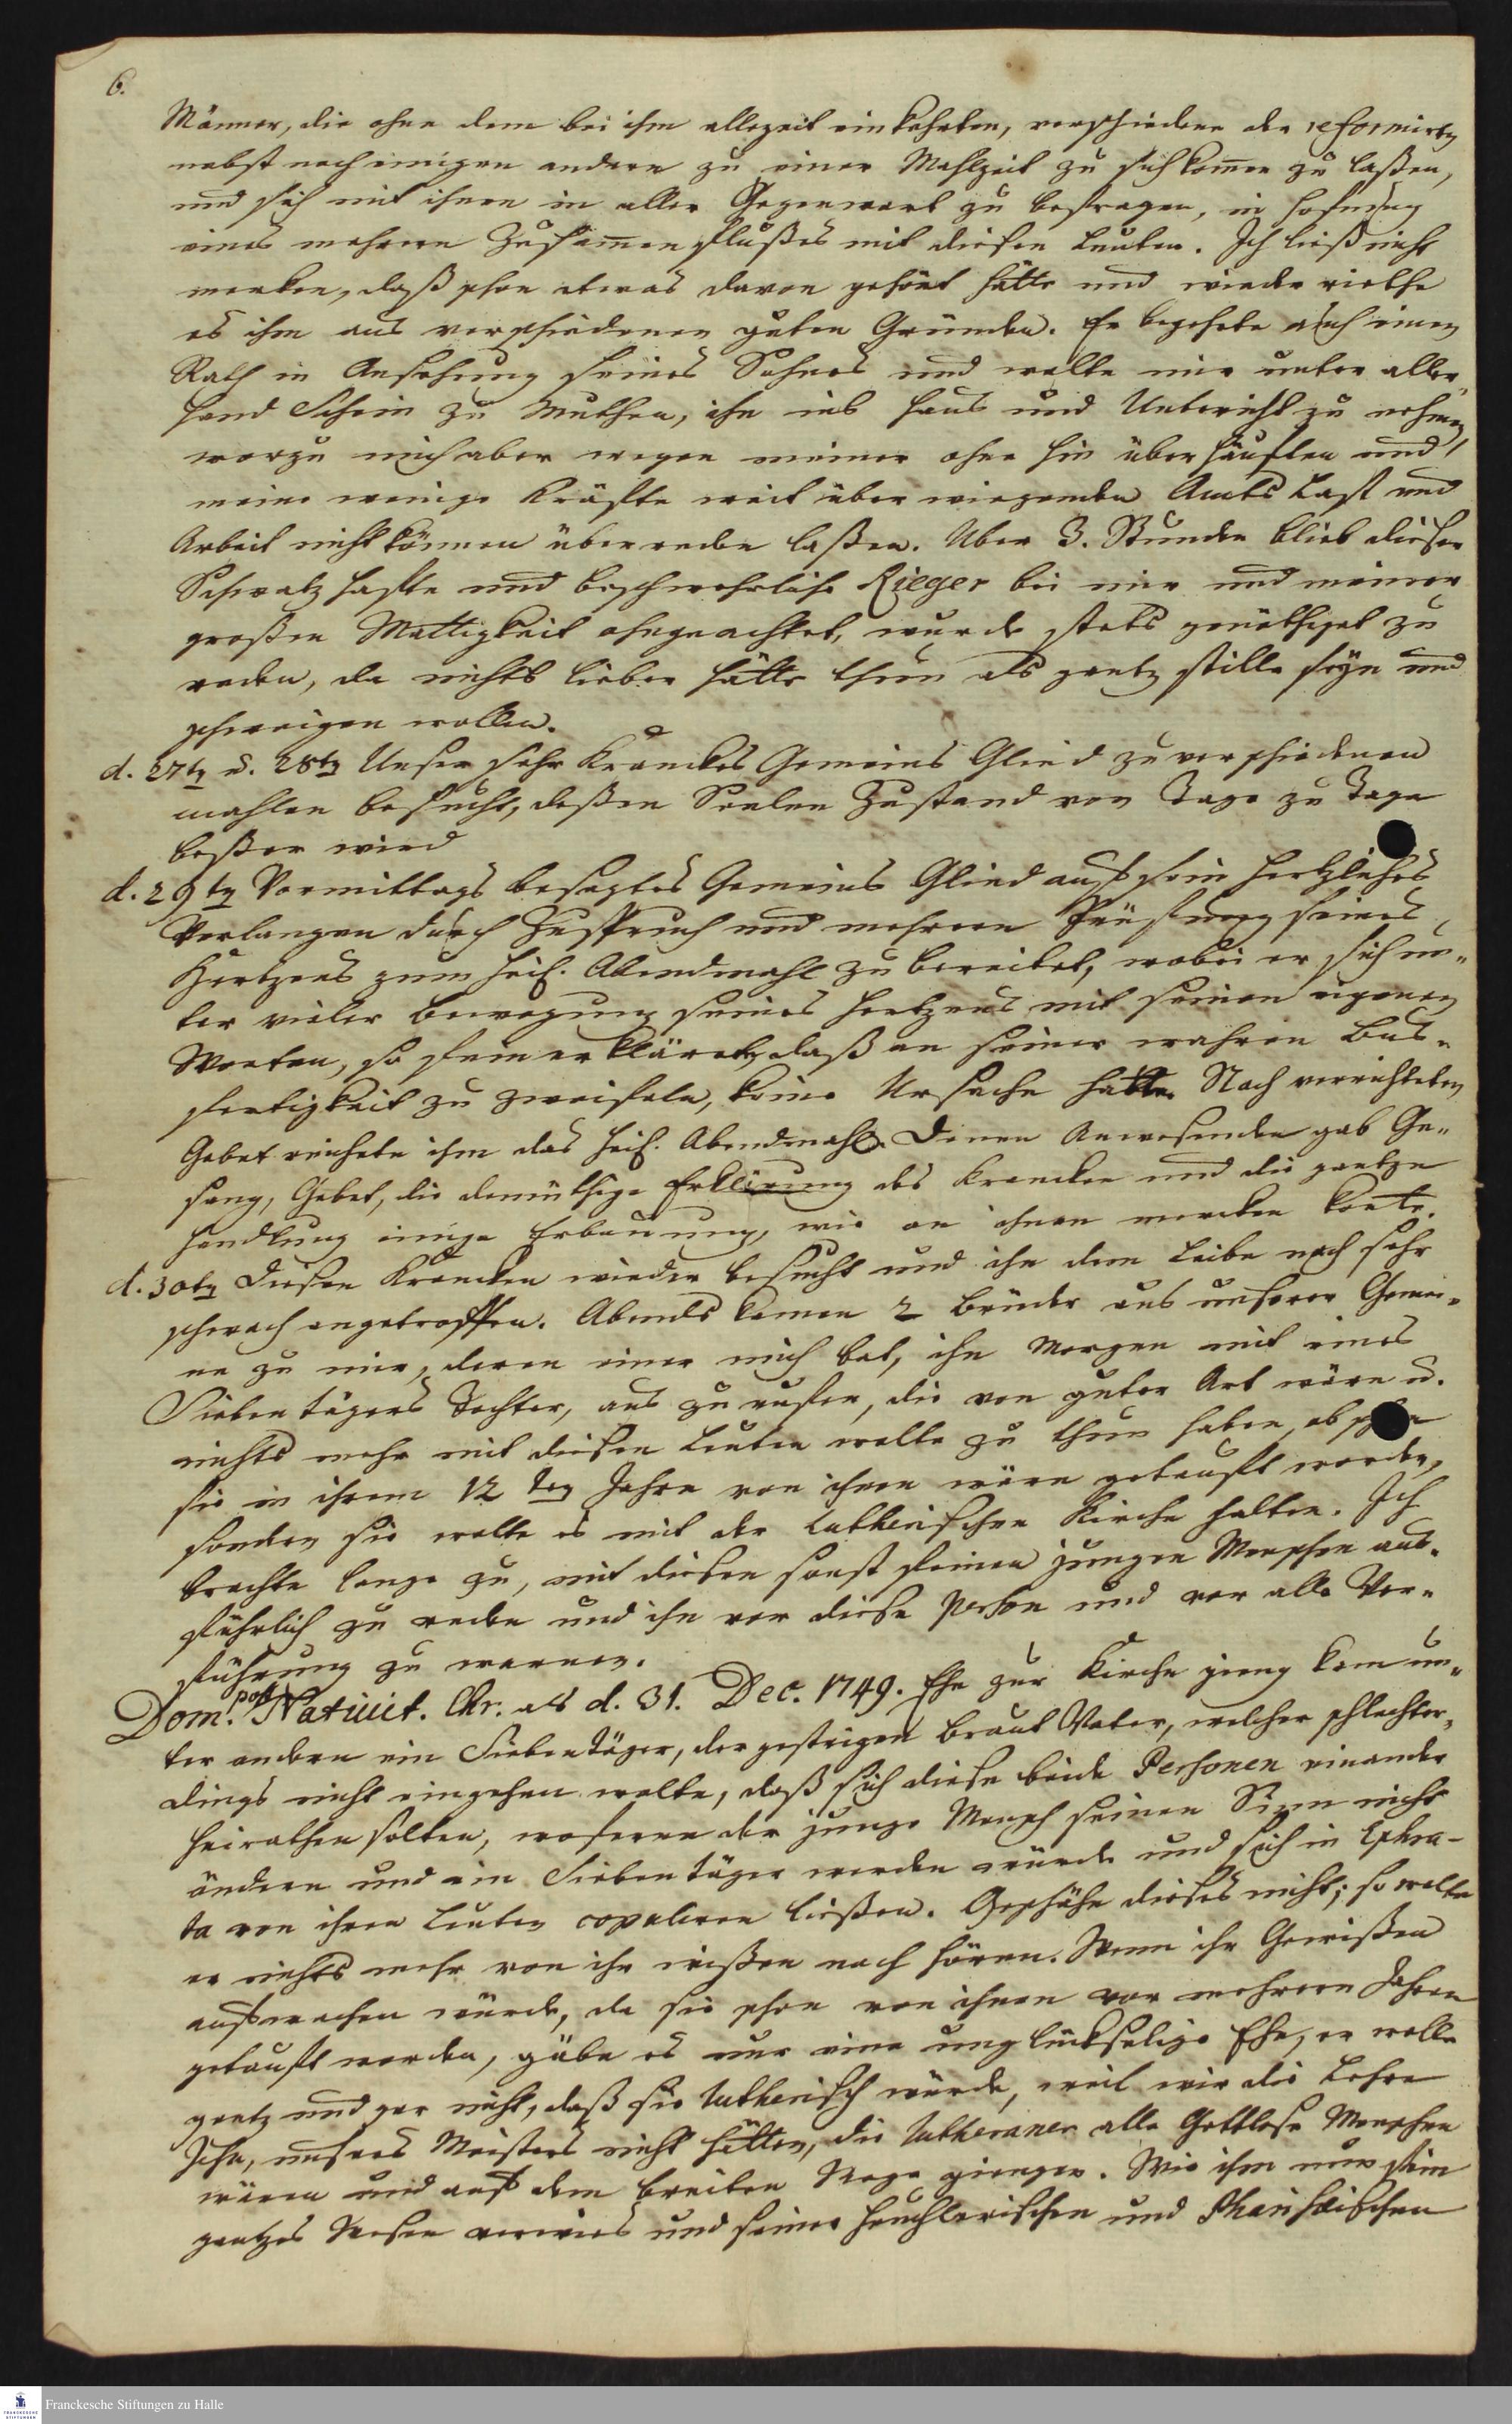 6.
Männer, die ohne dem bei ihm allezeit einkehrten, verschiedene der reformirten
nebst noch einigen andern zu einer Mahlzeit zu sich komen zu laßen,
und sich mit ihnen in aller Gegenwart zu befragen, in Hofnung
eines mehrern Zusamenflußes mit diesen Leuten. Ich ließ nicht
merken, daß schon etwas davon gehört hätte und wiederriethe
es ihm aus verschiedenen guten Gründen. Er begehrte auch einen
Rath in Ansehung seines Sohnes und wolte mir unter aller
hand Schein zu Muthen, ihn ins Haus und Untericht zu nehmen,
worzu mich aber wegen meiner ohne hin überhäuften und
meine wenige Kräfte weit über wiegenden Amts Last und
Arbeit nicht können überreden laßen. Über 3. Stunden blieb dieser
Schwatzhafte und beschwehrliche Rieger bei mir und meiner
großen Mattigkeit ohngeachtet, wurde stets genöthiget zu
reden, da nichts lieber hätte thun als gantz stille seyn und
schweigen wollen.
d. 27ten u. 28ten Unser sehr Kranckes Gemeins Glied zu verschiedenen
mahlen besucht, deßen Seelen Zustand von Tage zu Tage
beßer wird
d. 29ten Vormittags besagtes Gemeins Glied auf sein hertzliches
Verlangen durch Zuspruch und mehrern Prüfung seines
Hertzens zum heil. Abendmahl zu bereitet, wobei er sich un-
ter vieler Bewegung seines Hertzens mit seinen eigenen
Worten, so fein erklärete, daß an seiner wahren Bus-
fertigkeit zu zweifeln, keine Ursache hatte. Nach verrichteten
Gebet reichete ihm das heil. Abendmahl. Denen Anwesenden gab Ge-
sang, Gebet, die demüthige Erklärung des Krancken und die gantze
Handlung einige Erbauung, wie an ihnen mercken konte.
d. 30ten Diesen Krancken wieder besucht und ihn dem Leibe nach sehr
schwach angetroffen. Abends kamen 2 Brüder aus unserer Gemei-
ne zu mir, deren einer mich bat, ihn Morgen mit eines
Siebentägers Tochter, aus zu rufen, die von guter Art wäre u.
nichts mehr mit diesen Leuten wolte zu thun haben, ob schon
sie in ihrem 12 ten Jahre von ihnen wäre getauft worden,
sondern sie wolte es mit der Lutherischen Kirche halten. Ich
brachte lange zu, mit diesen sonst feinen jungen Menschen aus-
führlich zu reden und ihn vor diese Person und vor alle Ver-
führung zu warnen.
Dom. post Nativit. Chr. als d. 31. Dec. 1749. Ehe zur Kirche gieng kam un-
ter andern ein Siebentäger, der gestrigen Braut Vater, welcher schlechter-
dings nicht eingehen wolte, daß sich diese beide Personen einander
heirathen solten, woferne der junge Mensch seinen Sinn nicht
ändern und ein Siebentäger werden würde und sich in Ephra-
ta von ihren Leuten copuliren ließen. Geschähe dieses nicht; so wolte
er nichts mehr von ihr wißen noch hören. Wenn ihr Gewißen
aufwachen würde, da sie schon von ihnen vor mehrern Jahren
getauft worden, gäbe es nur eine unglückselige Ehe, er wolte
gantz und gar nicht, daß sie lutherisch würde, weil wir die Lehre
Jesu, unsers Meisters nicht hätten, die Lutheraner alle Gottlose Menschen
wären und auf dem breiten Wege giengen. Wie ihm nun sein
gantzes Wesen verwies und seinen heuchlerischen und Pharisäischen
Franckesche Stiftungen zu Halle